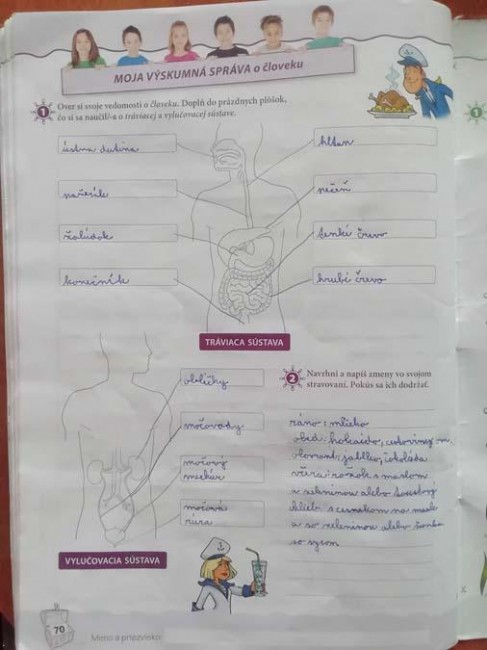 MOJA VÝSKUMNÁ SPRÁVA o človeku
1 Over si svoje vedomosti o človeku. Doplň do prázdnych plôšok,
čo si sa naučil/-a o tráviacej a vylučovacej sústave.
ústna dutina
hltan
pažerák
pečeň
žalúdok
tenké črevo
konečník
hrubé črevo
TRÁVIACA SÚSTAVA
obličky
močovody
močový
mechúr
močová
rúra
VYLUČOVACIA SÚSTAVA
2 Navrhni a napíš zmeny vo svojom
stravovaní. Pokús sa ich dodržať.
ráno: mlieko
obed: hokaido, cestoviny
olovrant: jablko, čokoláda
večera: rožok s maslom
a zeleninou alebo
chlieb s cesnakom na masle
a so zeleninou alebo šunka
so syrom
70
Meno a priezvisko: